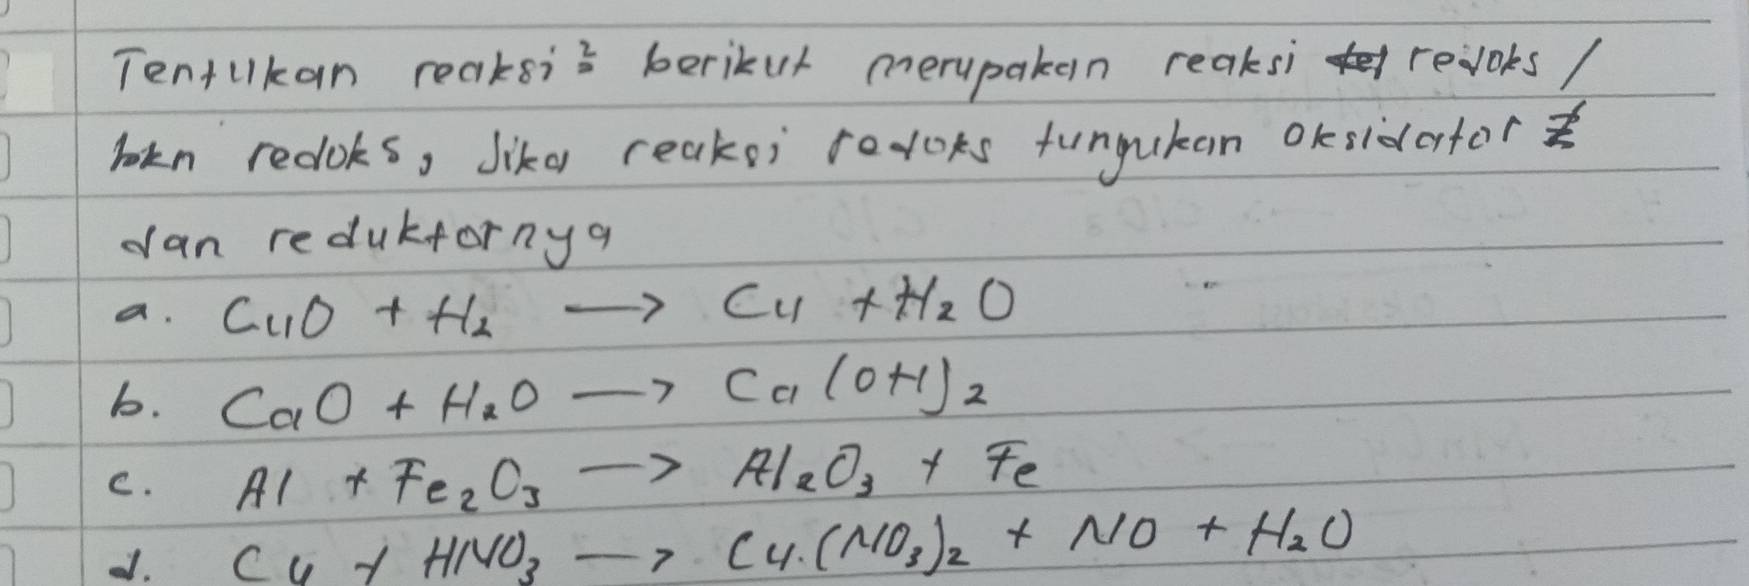 Tentukan reaksi² berikut merupakan reaksi redoks /
bkn redoks, Jika reaksi redoks tunjukan Oksidator
dan reduktornya
a. CuO + H₂ → Cu + H₂O
b. CaO + H₂O → Ca(OH)₂
c. Al + Fe₂O₃ → Al₂O₃ + Fe
d. Cu + HNO₃ → Cu.(NO₃)₂ + NO + H₂O